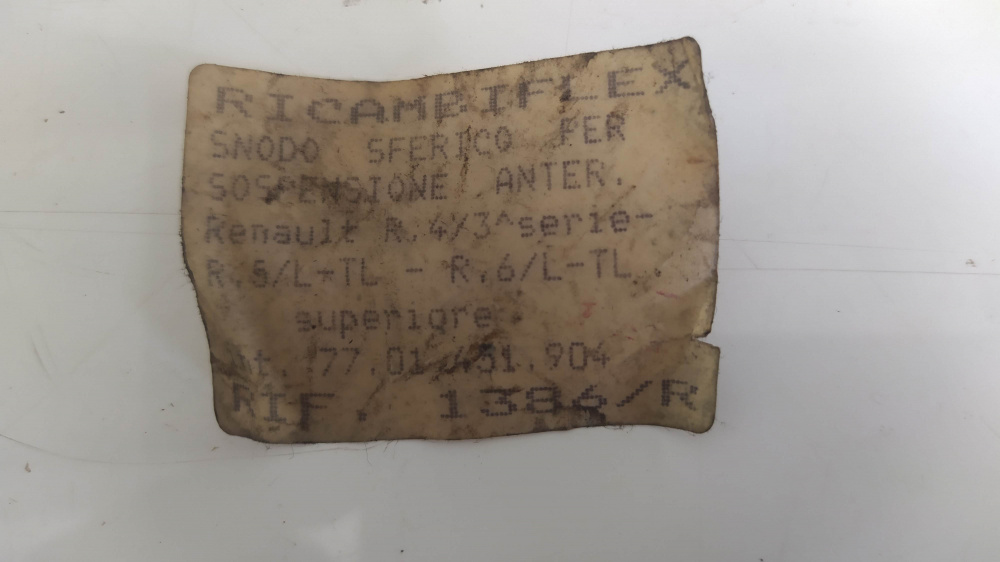 RICAMBIFLEX
SNODO SFERICO PER
SOSPENSIONE ANTER.
Renault R.4/3^serie-
R.5/L-TL - R.6/L-TL
superiore
77.01.451.904
RIF. 1386/R